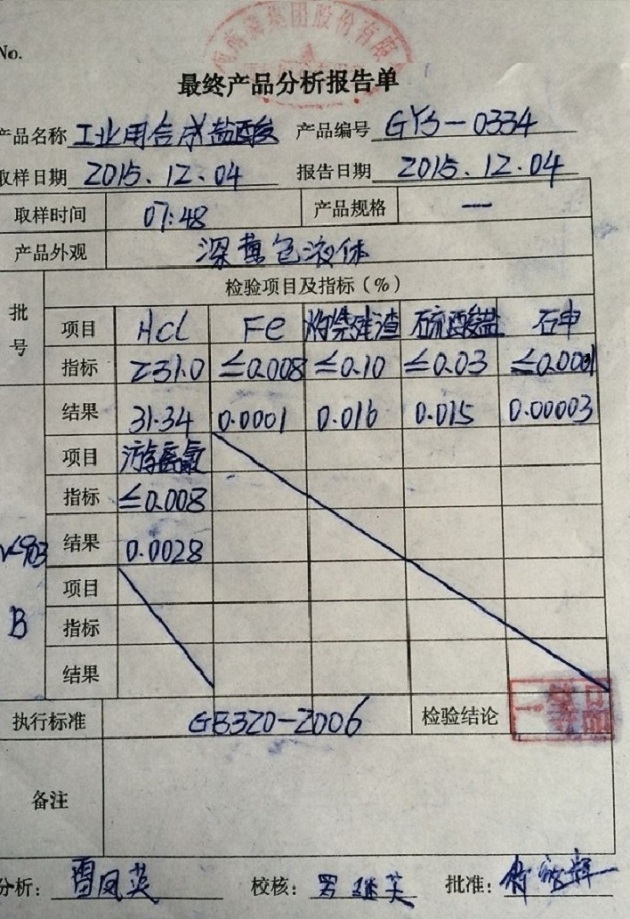 集团股份有限
No.
最终产品分析报告单
产品名称 工业用合成盐酸 产品编号 GYS-0334
取样日期 2015.12.04 报告日期 2015.12.04
取样时间 07:48 产品规格 —
产品外观 深黄色液体
批号 检验项目及指标(%)
项目 HCl Fe 灼烧残渣 硫酸盐 石申
指标 ≥31.0 ≤0.008 ≤0.10 ≤0.03 ≤0.0001
结果 31.34 0.0001 0.016 0.015 0.00003
项目 游离氯
指标 ≤0.008
结果 0.0028
项目
B 指标
结果
执行标准 GB320-2006 检验结论 一等品
备注
分析: 雷凤英 校核: 罗继英 批准: